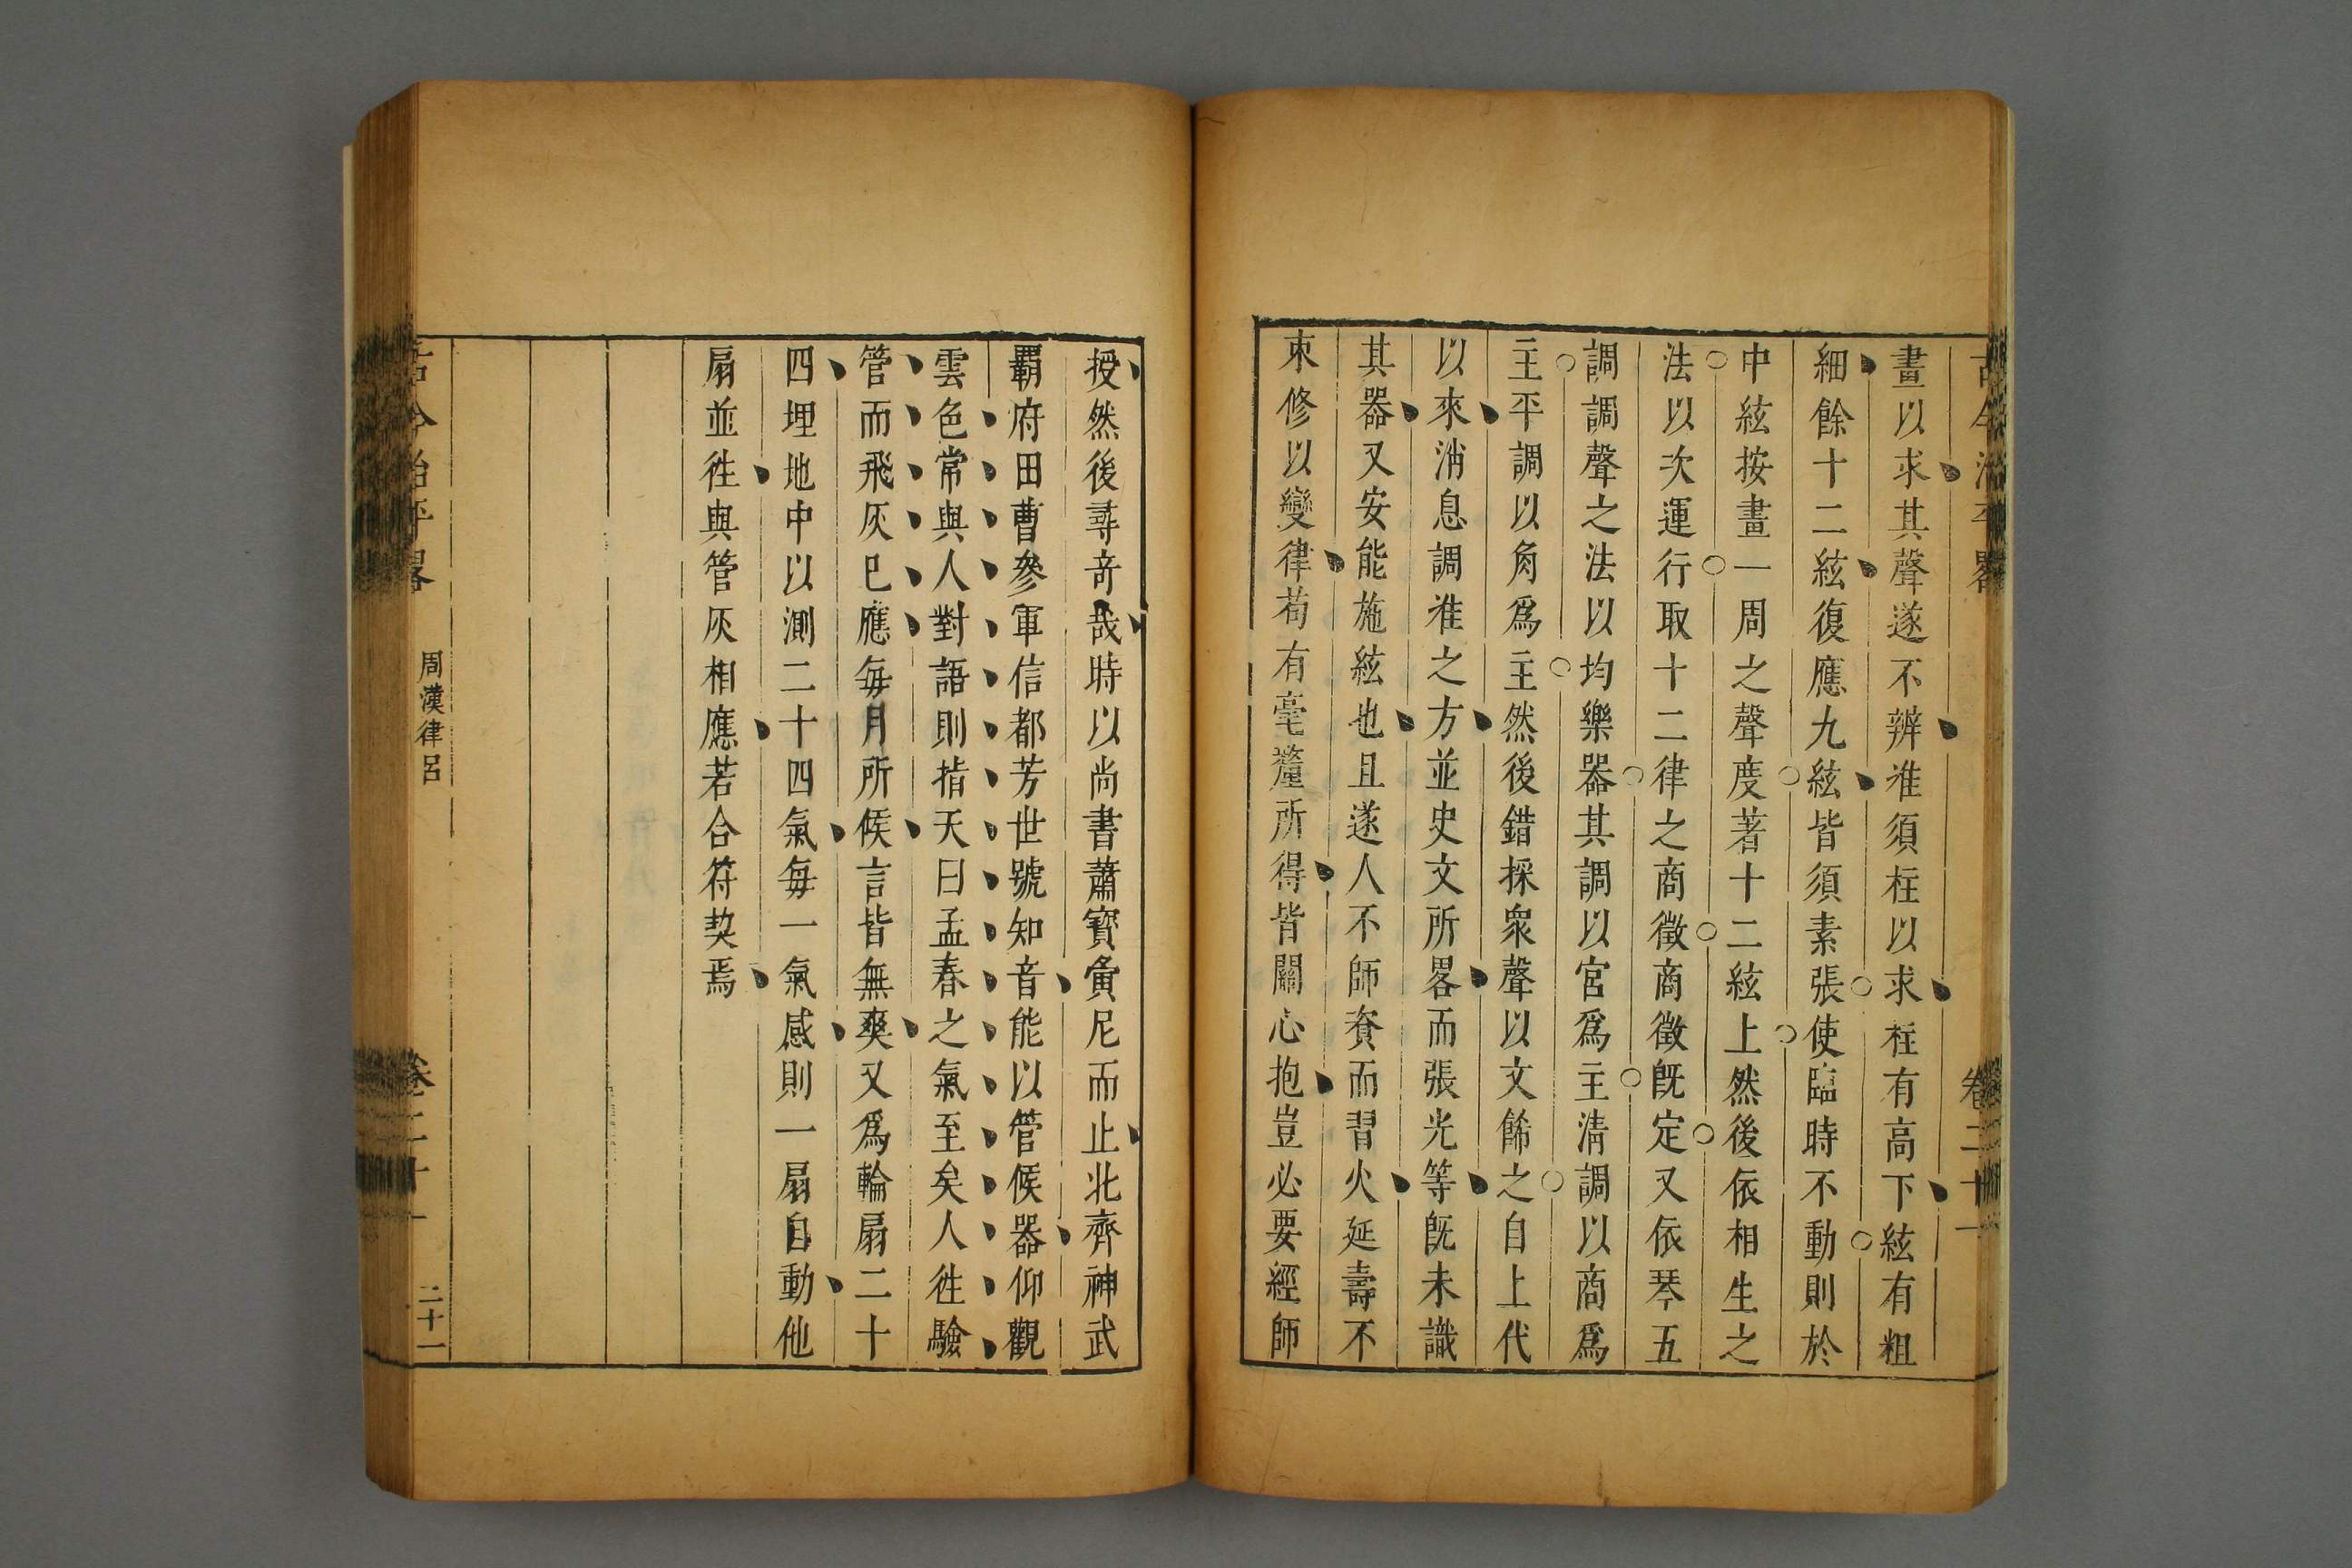 古今治平畧
卷二十一
畫以求其聲遂不辨准須柱以求柱有高下絃有粗
細餘十二絃復應九絃皆須素張使臨時不動則於
中絃按畫一周之聲度著十二絃上然後依相生之
法以次運行取十二律之商徵商徵旣定又依琴五
調調聲之法以均樂器其調以宮爲主清調以商爲
主平調以角爲主然後錯採衆聲以文餙之自上代
以來消息調准之方並史文所畧而張光等旣未識
其器又安能施絃也且遂人不師資而習火延壽不
束修以變律苟有毫釐所得皆關心抱豈必要經師
授然後尋奇哉時以尚書蕭寶夤尼而止北齊神武
覇府田曹參軍信都芳世號知音能以管候器仰觀
雲色常與人對語則指天曰孟春之氣至矣人徃驗
管而飛灰巳應每月所候言皆無爽又爲輪扇二十
四埋地中以測二十四氣每一氣感則一扇自動他
扇並徃與管灰相應若合符契焉
古今治平畧
周漢律呂
卷二十一
二十一